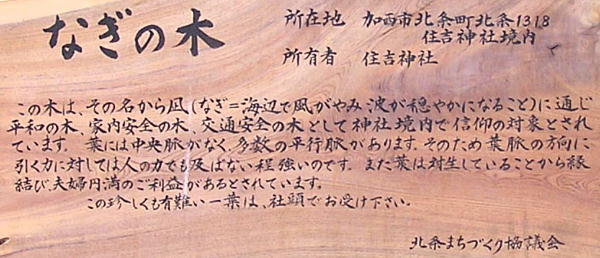 なぎの木
所在地 加西市北条町北条1318
住吉神社境内
所有者 住吉神社
この木は、その名から凪(なぎ=海辺で風がやみ波が穏やかになること)に通じ
平和の木、家内安全の木、交通安全の木として神社境内で信仰の対象とされ
ています。葉には中央脈がなく、多数の平行脈があります。そのため葉脈の方向に
引く力に対しては人の力でも及ばない程強いのです。また葉は対生していることから縁
結び、夫婦円満のご利益があるとされています。
この珍しくも有難い一葉は、社頭でお受け下さい。
北条まちづくり協議会